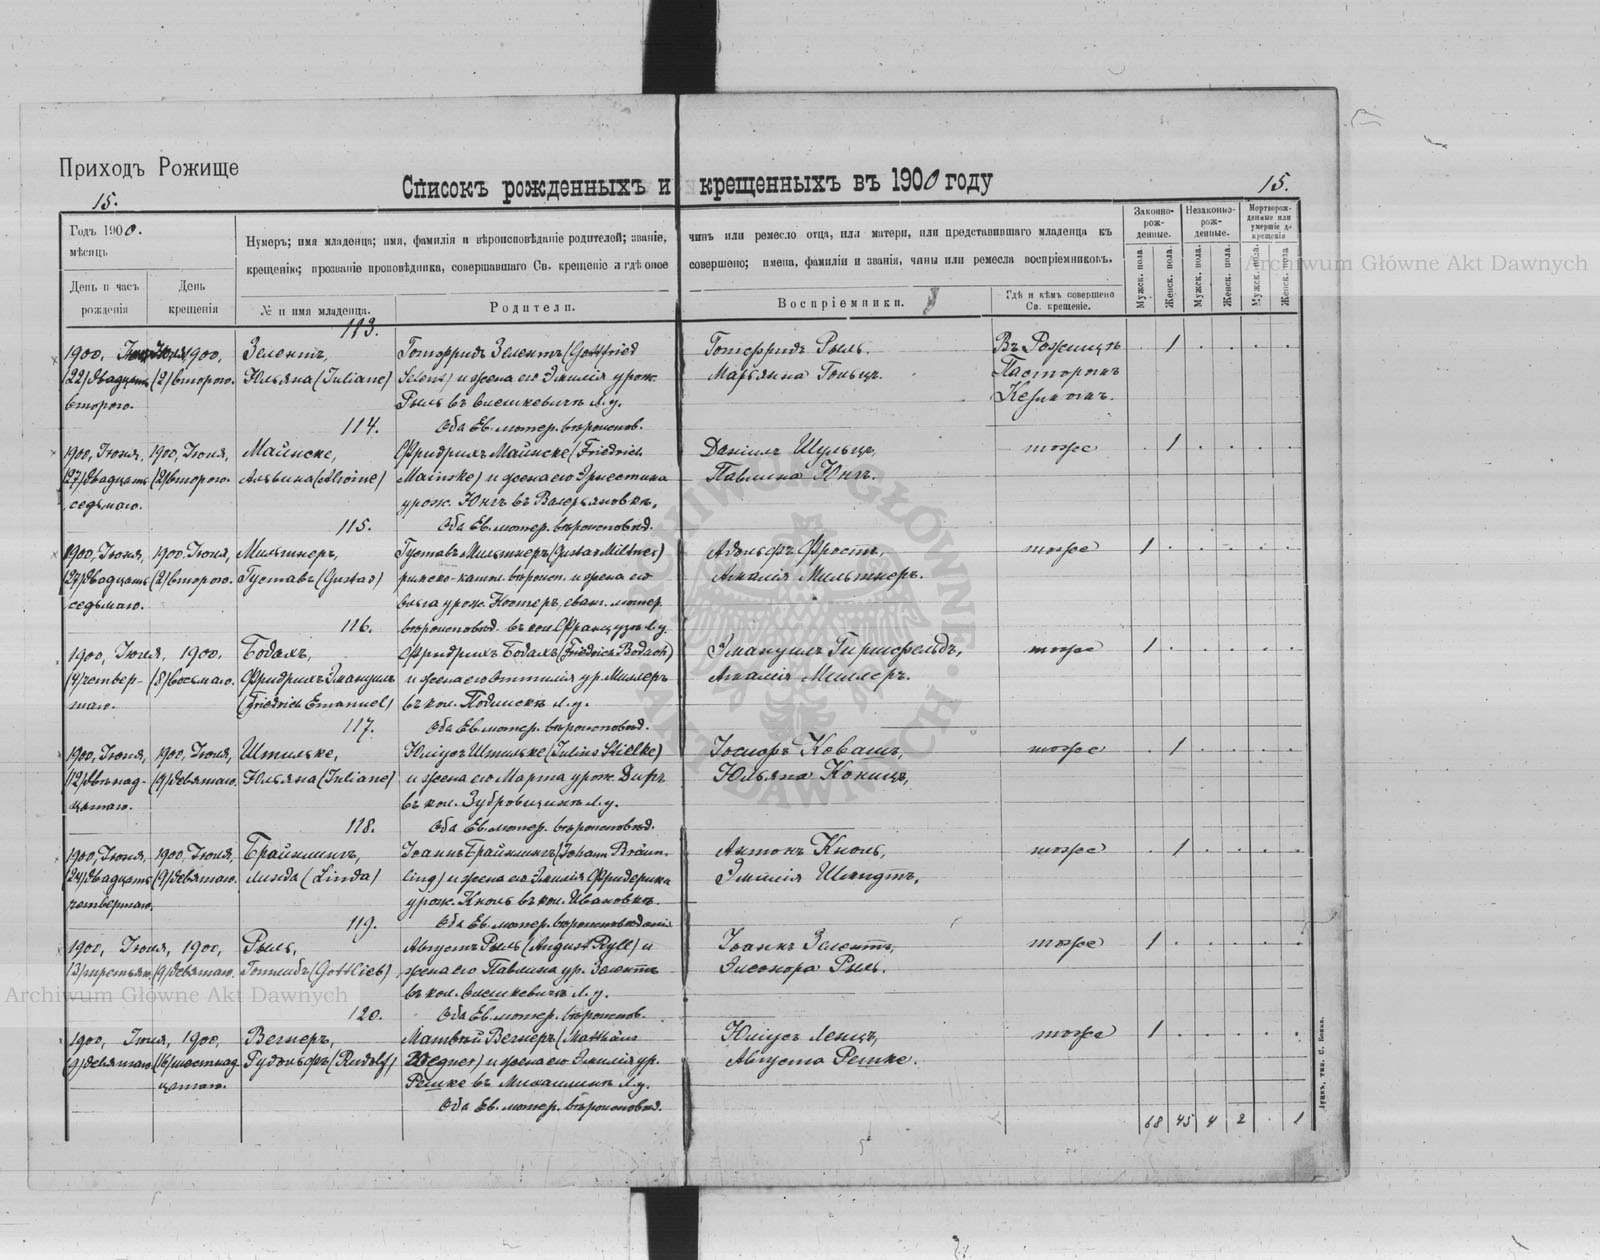 Приходъ Рожище
15.
Списокъ рожденныхъ и крещенныхъ въ 1900 году
15.
Годъ 1900.
мѣсяцъ
День и часъ рожденія
День крещенія
Нумеръ; имя младенца; имя, фамилія и вѣроисповѣданіе родителей; званіе, чинъ или ремесло отца, или матери, или представившаго младенца къ
крещенію; прозваніе проповѣдника, совершавшаго Св. крещеніе и гдѣ оное совершено; имена, фамиліи и званія, чины или ремесла воспріемниковъ.
№ и имя младенца.
Родители.
Воспріемники.
Гдѣ и кѣмъ совершено Св. крещеніе.
Законно-рож-денные.
Незаконно-рож-денные.
Мертворож-денные или умершіе до крещенія
Мужск. пола.
Женск. пола.
Мужск. пола.
Женск. пола.
Мужск. пола.
Женск. пола
113.
1900, 1900, Зелентъ, Готфридъ Зелентъ (Gottfried Готфридъ Рыль. Въ Рожищѣ 1
(22) двадцать (2) второго. Юльяна (Juliane) Selent) и жена его Эмилія урож. Марьянна Гольцъ. Пасторомъ
второго. Рыль въ Олешкевичѣ Л.у.
114. Оба Ев. лютер. вѣроисповѣд.
1900, Іюня, 1900, Іюля, Майнске, Фридрихъ Майнске (Friedrich Даніилъ Шульцъ, тоже 1
(27) двадцать (2) второго. Альвина (Alwine) Mainske) и жена его Эрнестина Павлина Юнгъ.
седьмаго. урож. Юнгъ въ Валерьяновкѣ,
115. Оба Ев. лютер. вѣроисповѣд.
1900, Іюня, 1900, Іюля, Мильтнеръ, Густавъ Мильтнеръ (Gustav Miltner) Адольфъ Фростъ, тоже 1
(27) двадцать (2) второго. Густавъ (Gustav) римско-катол. вѣроисп. и жена его Амалія Мильтнеръ.
седьмаго. Ольга урож. Костеръ, еванг. лютер.
116. вѣроисповѣд. въ кол. Французъ Л.у.
1900, Іюля, 1900. Бодахъ, Фридрихъ Бодахъ (Friedrich Bodach) Эмануилъ Гиршфельдъ, тоже 1
(4) четвер- (8) восьмаго. Фридрихъ Эмануилъ и жена его Оттилія ур. Миллеръ Амалія Миллеръ.
таго. (Friedrich Emanuel) въ кол. Подлискъ Л.у.
117. Оба Ев. лютер. вѣроисповѣд.
1900, Іюня, 1900, Іюля, Штильке, Юліусъ Штильке (Julius Stielke) тоже 1
(12) двѣнад- (9) девятаго. Юльяна (Juliane) и жена его Марта урож. Дифъ Юльяна
цатаго. въ кол. Зубровщинѣ Л.у.
118. Оба Ев. лютер. вѣроисповѣд.
1900, Іюня, 1900, Іюля, Брайнлингъ, Іоаннъ Брайнлингъ (Johann Bräun- Антонъ Кноль, тоже 1
(24) двадцать (9) девятаго. Линда (Linda) ling) и жена его Эмилія Фридерика Эмилія Шмидтъ,
четвертаго. урож. Кноль въ кол. Ивановкѣ.
119. Оба Ев. лютер. вѣроисповѣданія
1900, Іюля, 1900, Рыль, Августъ Рыль (August Ryll) и Іоаннъ Зелентъ, тоже 1
(3) третьяго (9) девятаго. Готлибъ (Gottlieb) жена его Павлина ур. Зелентъ Элеонора Рыль.
въ кол. Олешкевичѣ Л.у.
120. Оба Ев. лютер. вѣроисповѣд.
1900, Іюля, 1900, Вегнеръ, Матвѣй Вегнеръ (Matthäus Юліусъ Ленцъ, тоже 1
(9) девятаго (16) шестнад- Рудольфъ (Rudolf) Wegner) и жена его Эмилія ур. Августа Решке.
цатаго. Решке въ Михаилинѣ Л.у.
Оба Ев. лютер. вѣроисповѣд.
68 45 4 2 . 1
Archiwum Główne Akt Dawnych
Archiwum Główne Akt Dawnych
ARCHIWUM GŁÓWNE AKT DAWNYCH